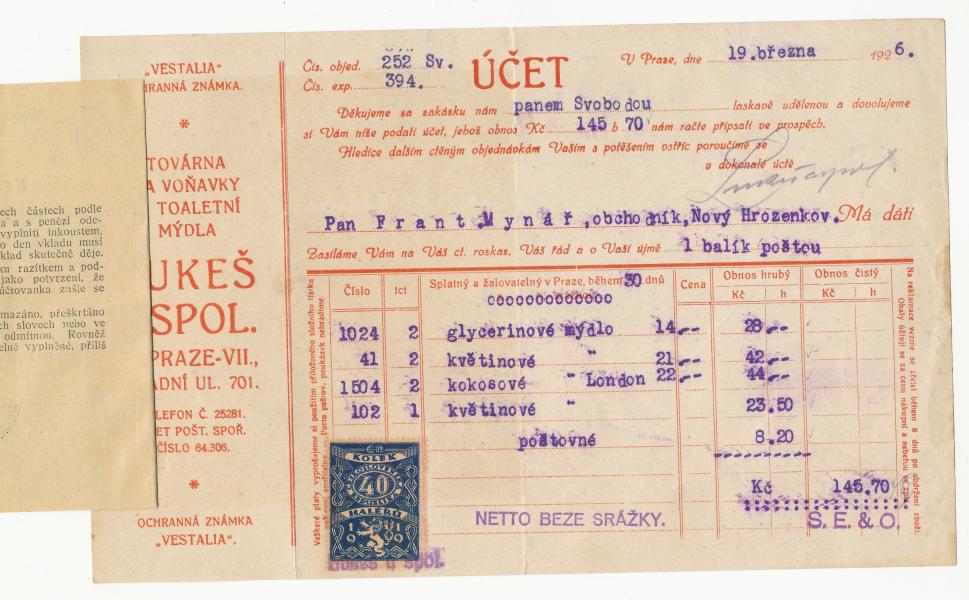 ech částech podle
a a s penězi ode-
vyplniti inkoustem,
o den vkladu musí
klad skutečně děje.
ku razítkem a pod-
jako potvrzení, že
účtovanka zašle se
mazáno, přeškrtáno
ch slovech nebo ve
odmítnou. Rovněž
elně vyplněné, příliš
„VESTALIA“
HRANNÁ ZNÁMKA.
*
TOVÁRNA
A VOŇAVKY
TOALETNÍ
MÝDLA
UKEŠ
SPOL.
PRAZE-VII.,
ADNÍ UL. 701.
LEFON Č. 25281.
ET POŠT. SPOŘ.
ČÍSLO 64.306.
*
OCHRANNÁ ZNÁMKA
„VESTALIA“.
Čís. objed. 252 Sv.
Čís. exp. 394.
ÚČET
V Praze, dne 19.března 1926.
Děkujeme za zakázku nám panem Svobodou laskavě udělenou a dovolujeme
si Vám níže podati účet, jehož obnos Kč 145 h 70 nám račte připsati ve prospěch.
Hledíce dalším ctěným objednávkám Vašim s potěšením vstříc poroučíme se
v dokonalé úctě
Pan Frant.Mynář,obchodník,Nový Hrozenkov. Má dáti
Zasíláme Vám na Váš ct. rozkaz, Váš řád a o Vaší újmě 1 balík poštou
Číslo tct Splatný a žalovatelný v Praze, během 30 dnů Cena Obnos hrubý Obnos čistý
Kč h Kč h
1024 2 glycerinové mýdlo 14.-- 28.--
41 2 květinové " 21.-- 42.--
1504 2 kokosové " London 22.-- 44.--
102 1 květinové " 23.50
poštovné 8.20
Kč 145.70
NETTO BEZE SRÁŽKY.
S. E. & O.
KOLEK
40
HALÉŘŮ
1919
Dukeš a spol.
Veškeré platy vyprošujeme si použitím přiloženého složního lístku
Porto peštov. poukázek nehradíme.
Na reklamace vezme se zřetel během 8 dnů po obdržení zboží.
Obaly účtují se za cenu nákupní a neberou se zpět.